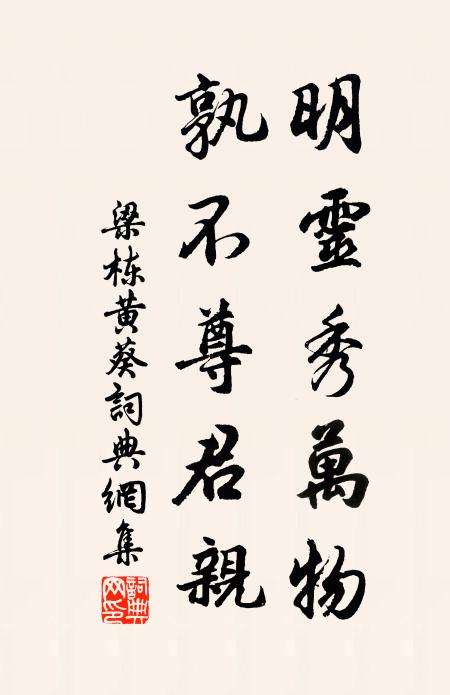 明靈秀萬物
孰不尊君親
梁栋黄葵詞典網集
詞典网印